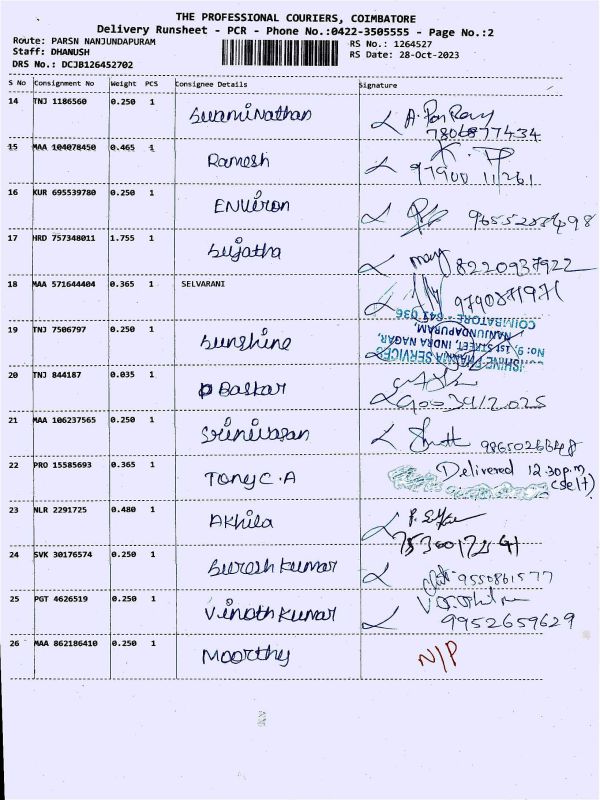 THE PROFESSIONAL COURIERS, COIMBATORE
Delivery Runsheet - PCR - Phone No.:0422-3505555 - Page No.:2
Route: PARSN NANJUNDAPURAM RS No.: 1264527
Staff: DHANUSH RS Date: 28-Oct-2023
DRS No.: DCJB126452702
S No Consignment No Weight PCS Consignee Details Signature
14 TNJ 1186560 0.250 1 Swaminathan
7806877434
15 MAA 104078450 0.465 1 Ramesh
97900 11261
16 KUR 695539780 0.250 1 ENViron
17 HRD 757348011 1.755 1 Sujatha
8220937922
18 MAA 571644404 0.365 1 SELVARANI
9790871971
19 TNJ 7506797 0.250 1 Sunshine
No: 9, 1st STREET, INDRA NAGAR,
NANJUNDAPURAM,
COIMBATORE - 641 036
20 TNJ 844187 0.035 1 Baskar
9003912025
21 MAA 106237565 0.250 1 Srinivasan
22 PRO 15585693 0.365 1 Tony C.A
Delivered 12.30p.m
(self)
23 NLR 2291725 0.480 1 Akhila
24 SVK 30176574 0.250 1 Suresh kumar
9550861577
25 PGT 4626519 0.250 1 Vinoth Kumar
9952659629
26 MAA 862186410 0.250 1 Moorthy
N/P